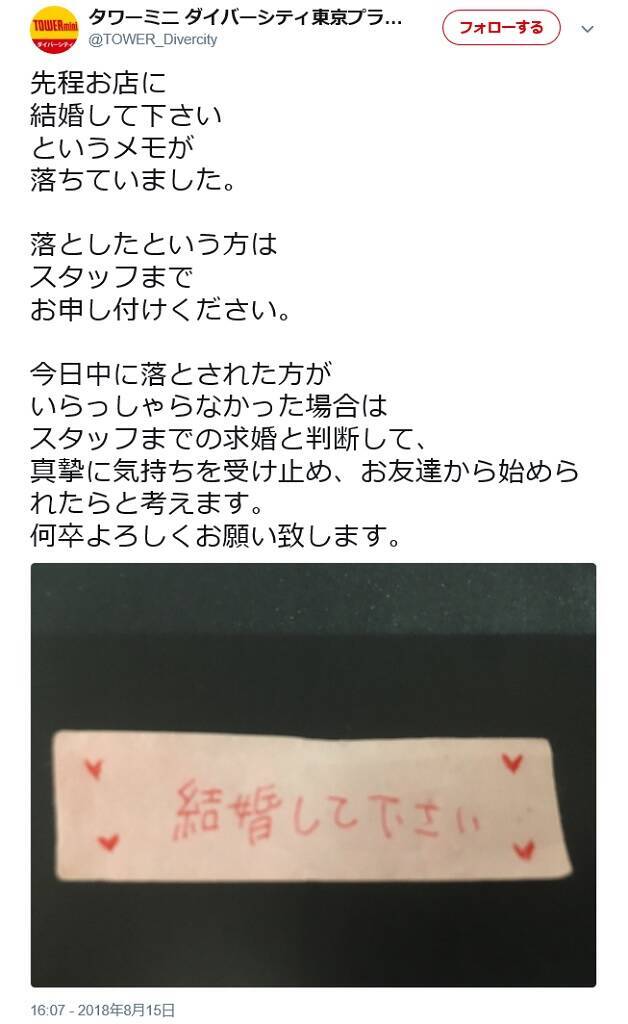 TOWERmini
ダイバーシティ
タワーミニ ダイバーシティ東京プラ...
@TOWER_Divercity
フォローする
先程お店に
結婚して下さい
というメモが
落ちていました。
落としたという方は
スタッフまで
お申し付けください。
今日中に落とされた方が
いらっしゃらなかった場合は
スタッフまでの求婚と判断して、
真摯に気持ちを受け止め、お友達から始めら
れたらと考えます。
何卒よろしくお願い致します。
結婚して下さい
16:07 - 2018年8月15日